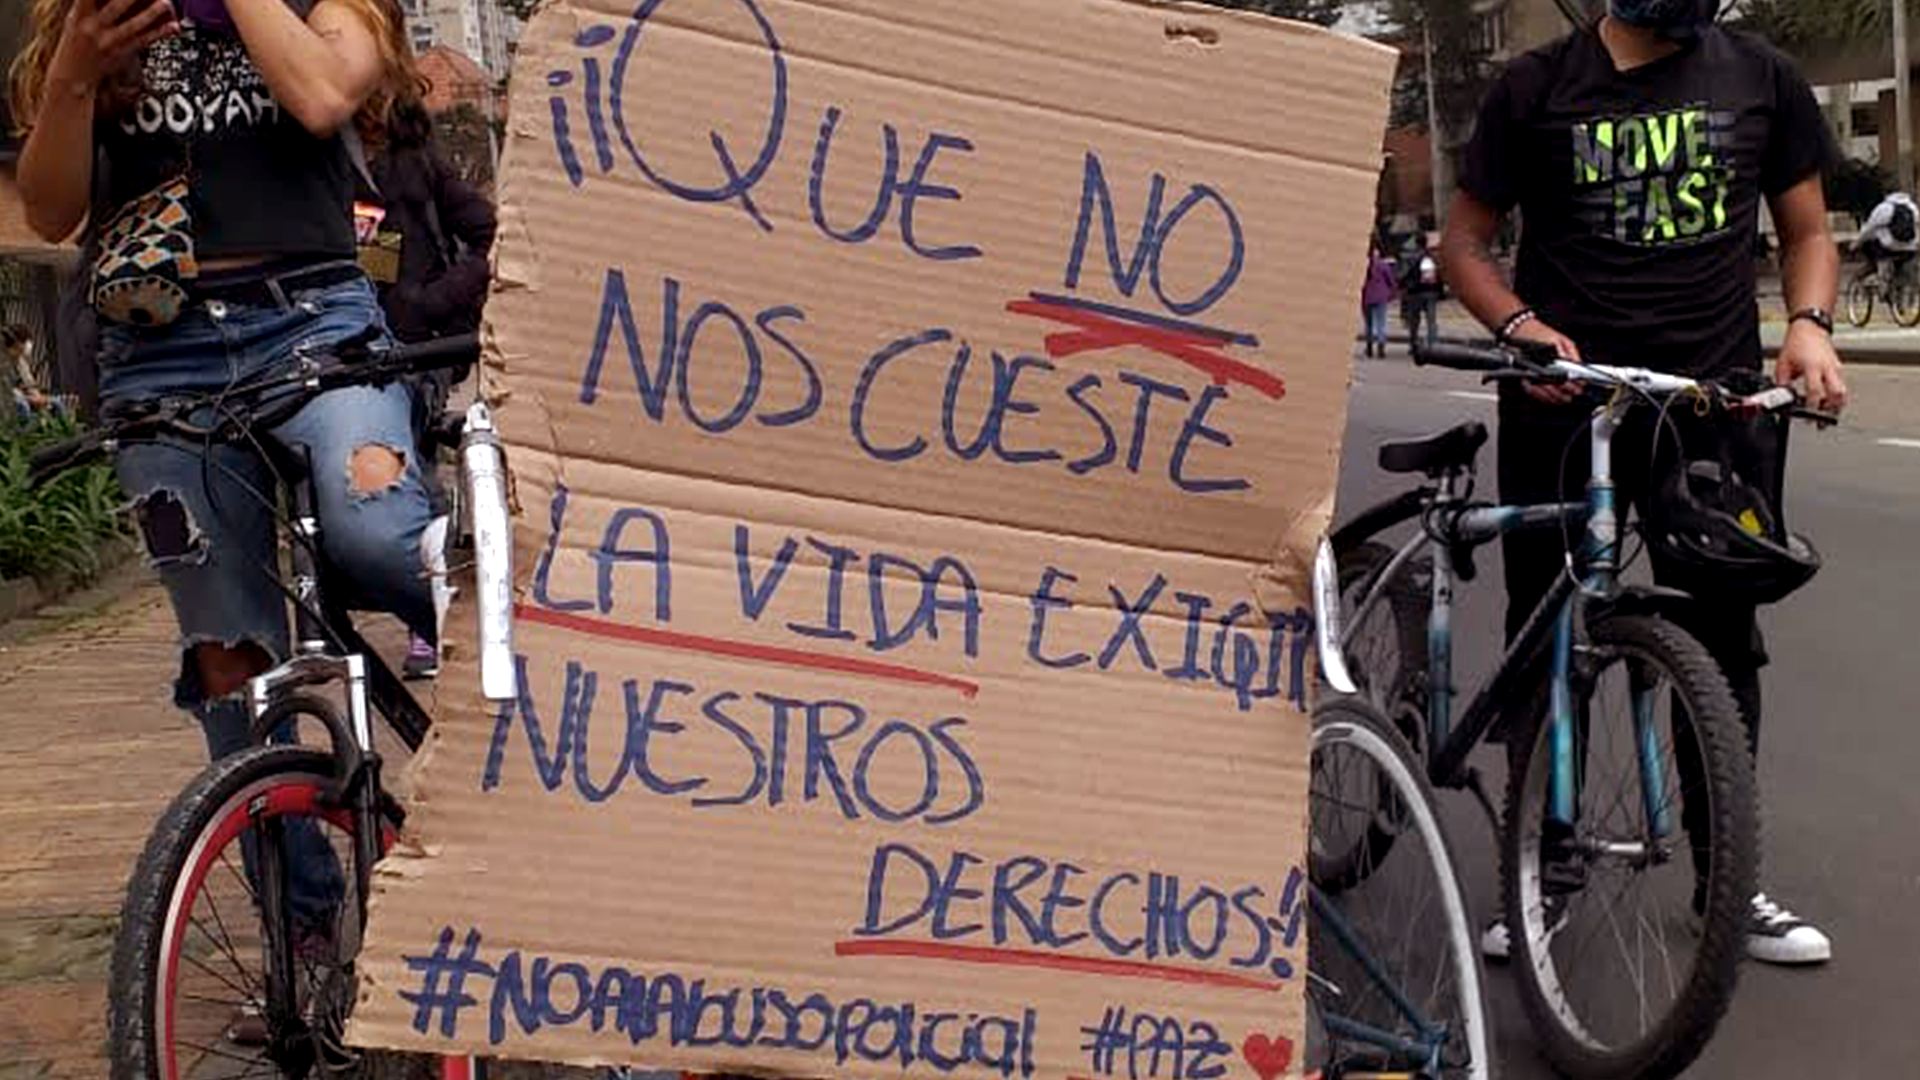 OOYAH
¡¡QUE NO
NOS CUESTE
LA VIDA EXIGIR
NUESTROS
DERECHOS!!
#NOALAbUSOPOlicial #PAZ
MOVE
FAST